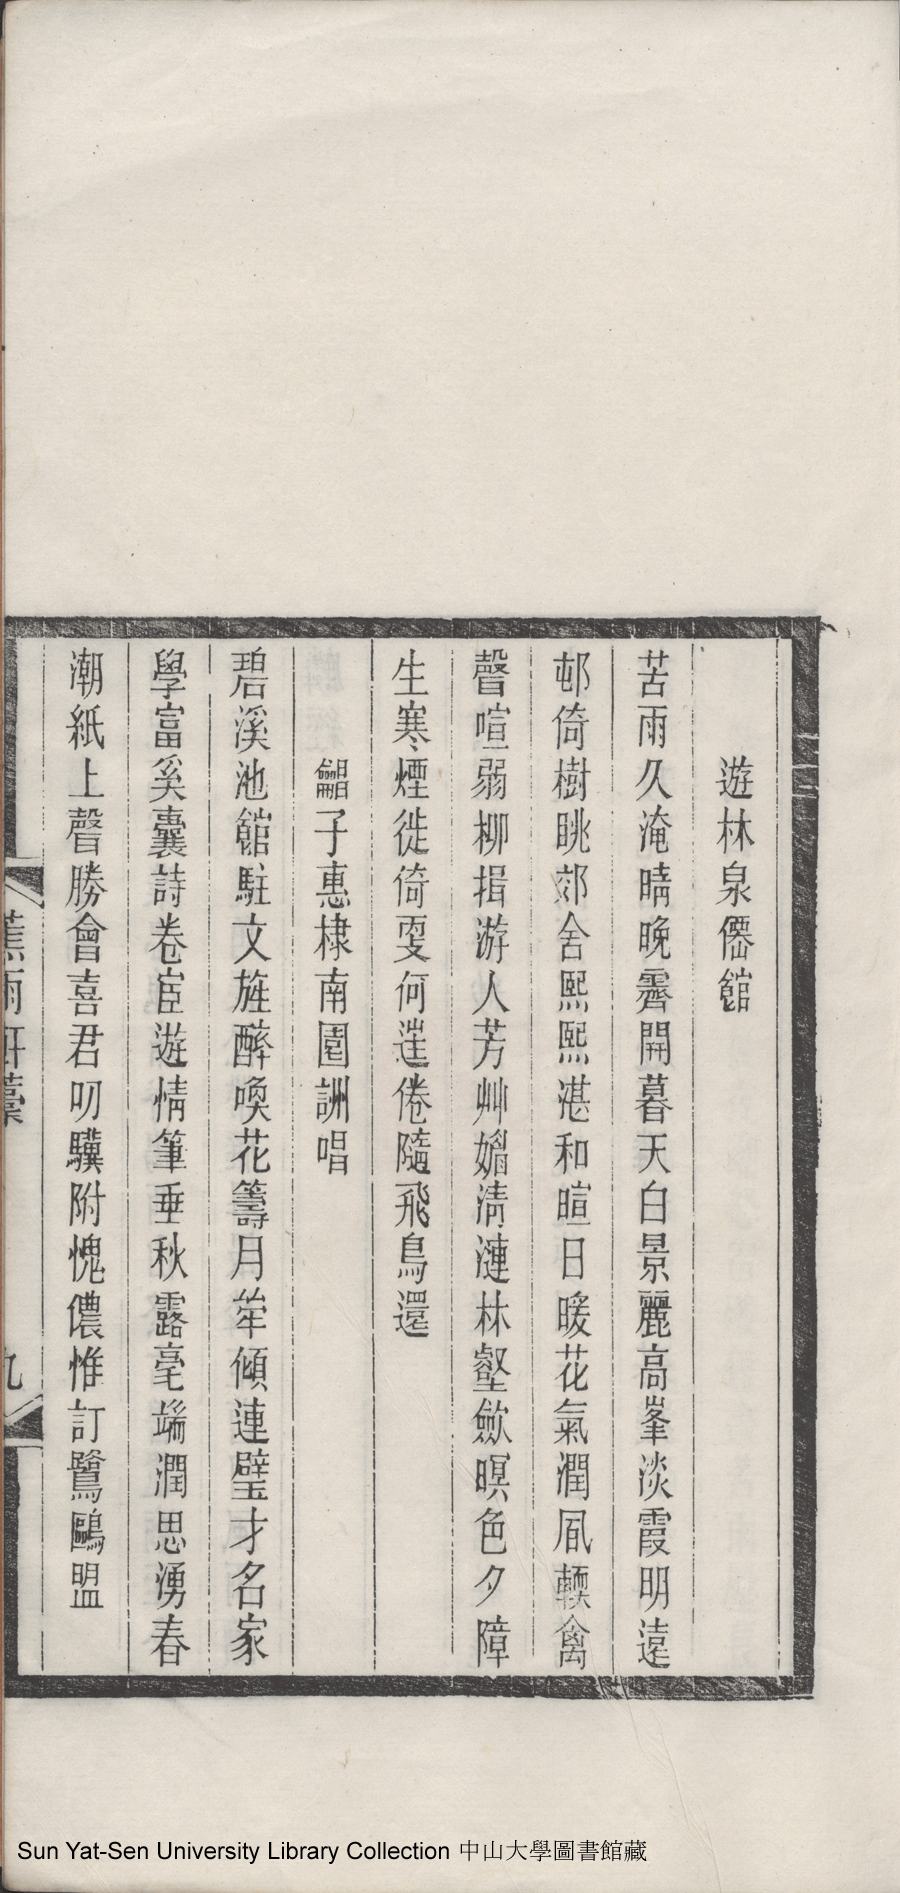 遊林泉僊館
苦雨久淹晴晚霽開暮天白景麗高峯淡霞明遠
邨倚樹眺郊舍熙熙湛和暄日暖花氣潤風輭禽
聲喧弱柳揖游人芳艸媚清漣林壑斂暝色夕障
生寒煙徙倚更何遙倦隨飛鳥還
龃子惠棣南園詶唱
碧溪池館駐文旌醉喚花籌月笙傾連璧才名家
學富奚囊詩卷宦遊情筆垂秋露毫端潤思湧春
潮紙上聲勝會喜君叨驥附愧儂惟訂鷺鷗盟
蕉雨軒藁
九
Sun Yat-Sen University Library Collection 中山大學圖書館藏